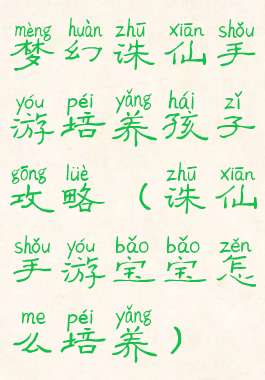 mèng huàn zhū xiān shǒu
梦幻诛仙手
yóu péi yǎng hái zǐ
游培养孩子
gōng lüè zhū xiān
攻略（诛仙
shǒu yóu bǎo bǎo zěn
手游宝宝怎
me péi yǎng
么培养）